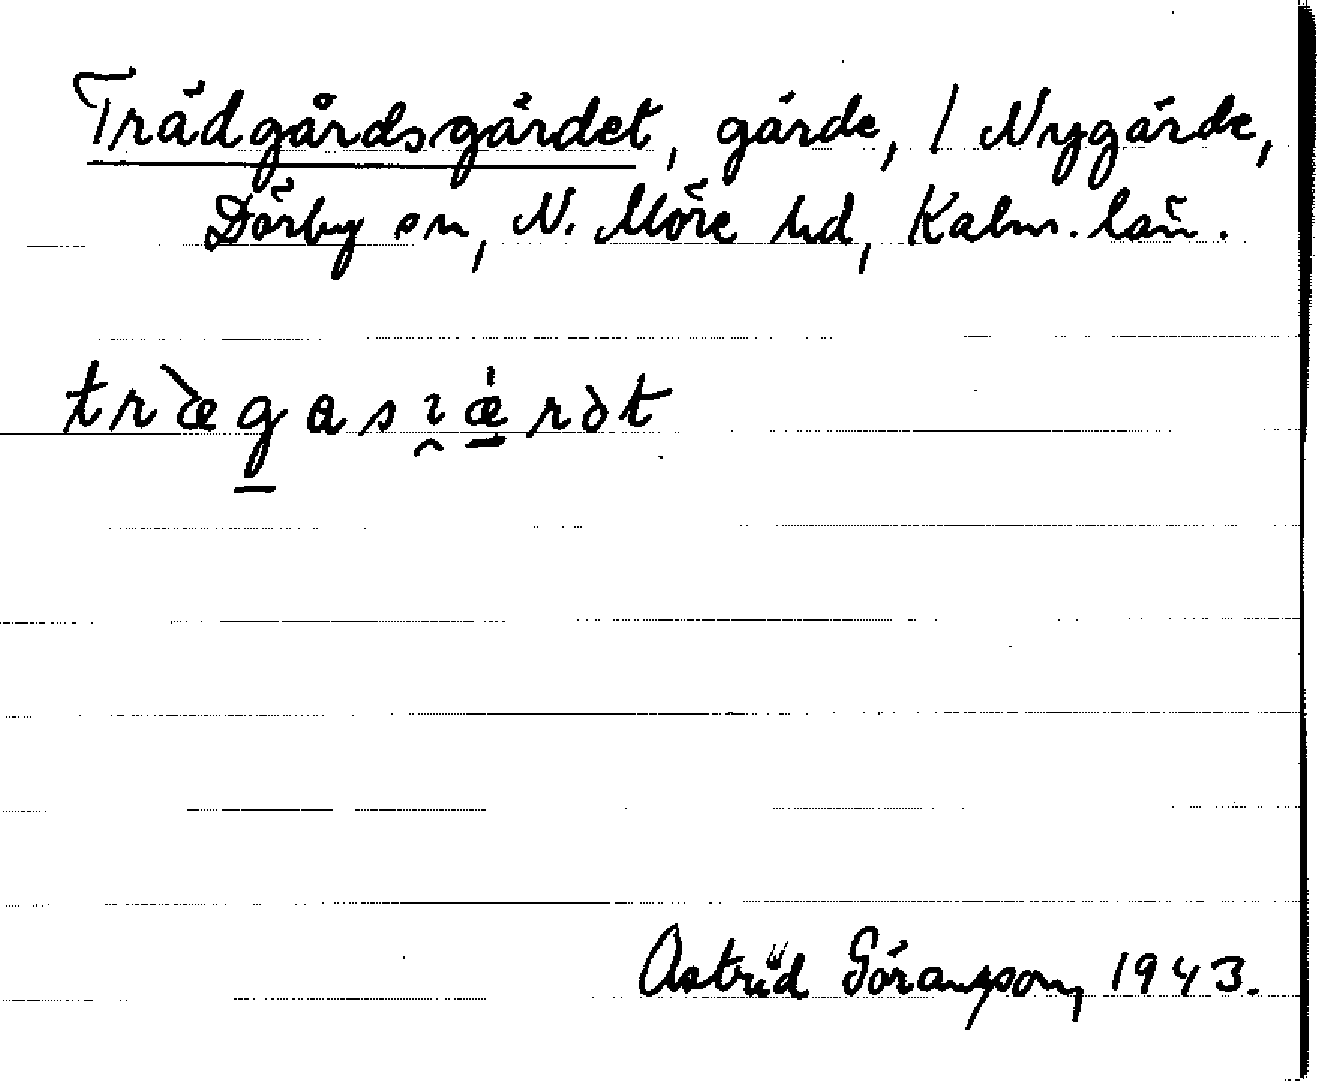 Trädgårdsgärdet, gärde, / Nygärde,
Dörby sn, N. Möre hd, Kalm. län.
Astrid Göransson, 1943.